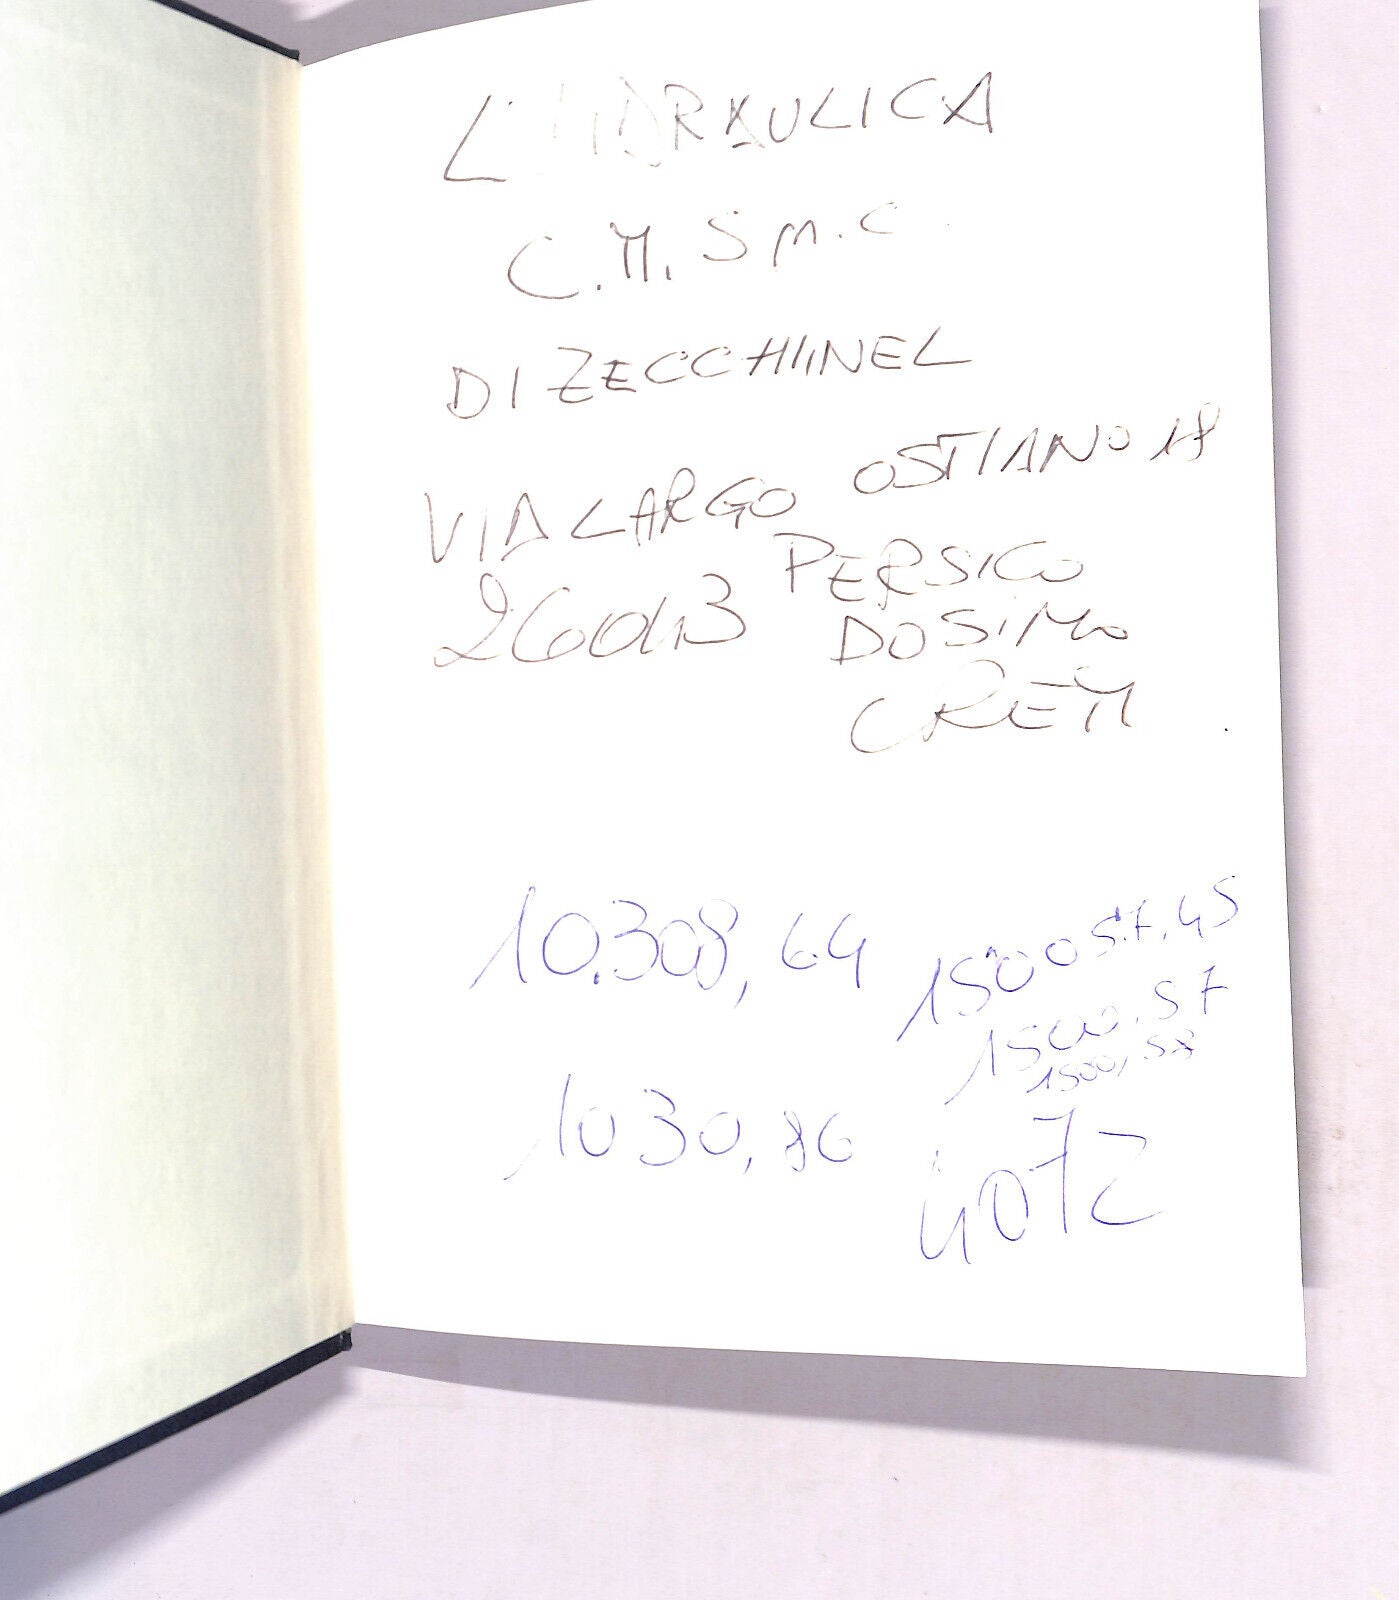 L'IDRAULICA
C.M. S n.c.
DI ZECCHINEL
VIA LARGO OSTIANO 18
26043 PERSICO
DOSIMO
CREM
10.308,64 1500 S.F. 45
1500, S F
1500,
1030,86
4072